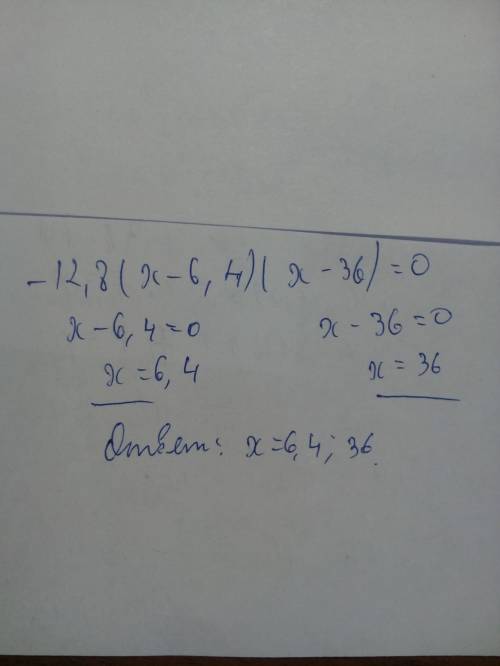 -12,8(x-6,4)(x-36)=0
x-6,4=0 x-36=0
x=6,4 x=36
Ответ: x=6,4; 36.